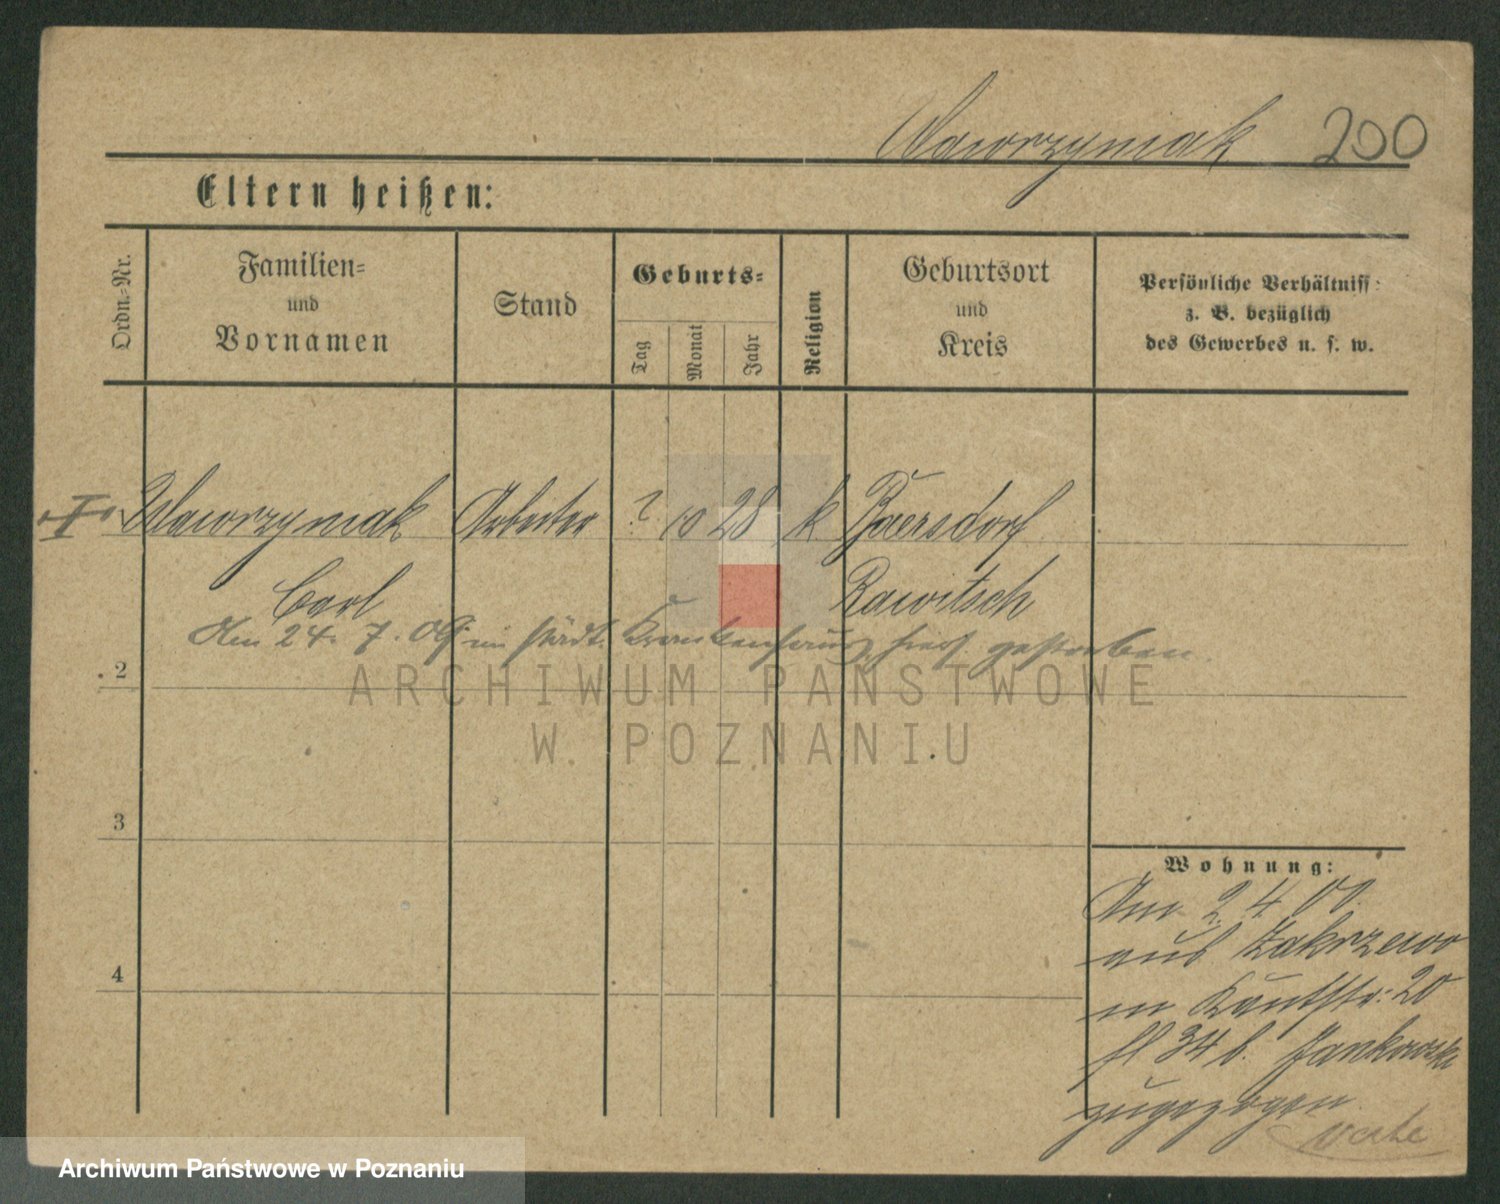 Wawrzyniak 200
Eltern heißen:
Ordn.-Nr.
Familien-
und
Vornamen
Stand
Geburts-
Tag
Monat
Jahr
Religion
Geburtsort
und
Kreis
Persönliche Verhältniss
z. B. bezüglich
des Gewerbes u. s. w.
I Wawrzyniak Arbeiter ? 10 28 k Baersdorf
Carl Rawitsch
Am 24. 7. 09 im städt. Krankenhaus hies. gestorben.
2
3
4
Wohnung:
Am 2. 4. 00.
aus Zakrzewo
in 20
34 b. Jankowski
zugezogen
ARCHIWUM PAŃSTWOWE
W POZNANIU
Archiwum Państwowe w Poznaniu